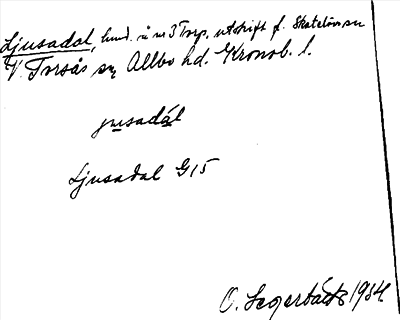 Ljusadal, lund. u. nr 3 Torp. utskrift f. Skatelöv sn
V. Torsås sn, Allbo hd. Kronob. l.
jusadál
Ljusadal G15
O. Segerbäck 1934